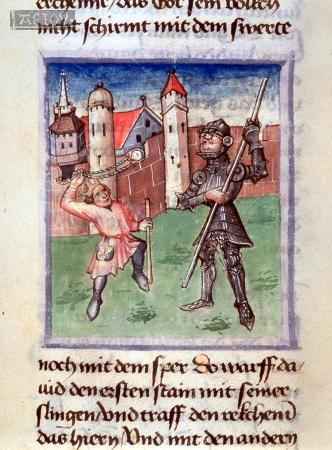 AGIOV
erchenne/das Got sein volkch
nicht schirmt mit dem swerte
noch mit dem sper Do warff da
uid den ersten stain mit seiner
slingen/Vnd traff den rekchen In
das hiern/Vnd mit den andern